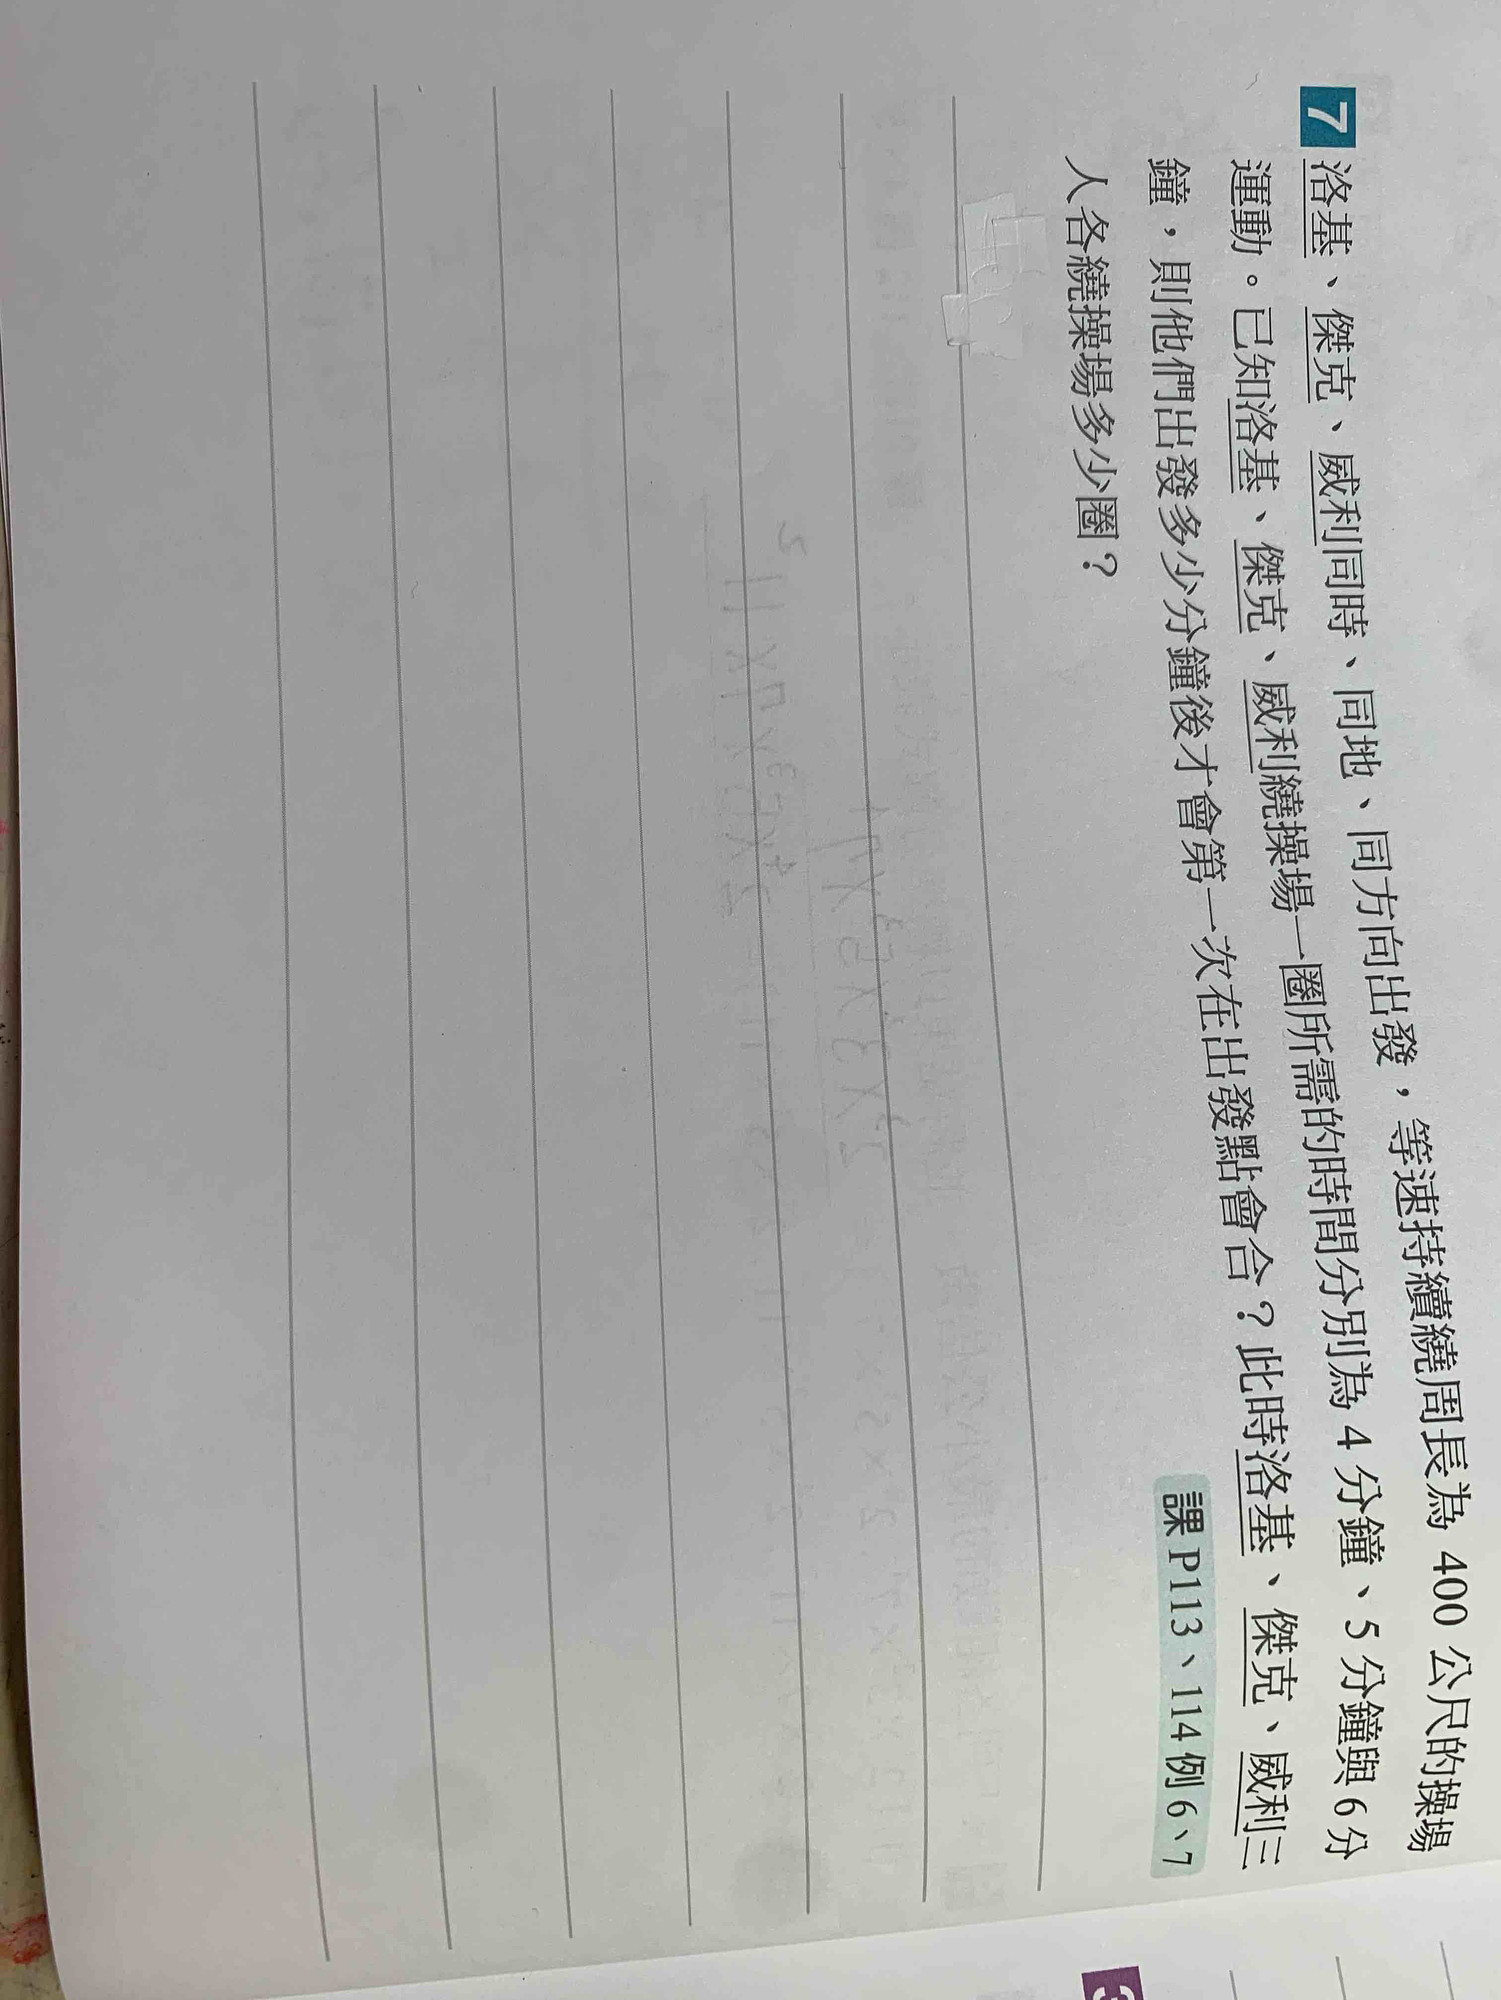 7 洛基、傑克、威利同時、同地、同方向出發，等速持續繞周長為 400 公尺的操場
運動。已知洛基、傑克、威利繞操場一圈所需的時間分別為 4 分鐘、5 分鐘與 6 分
鐘，則他們出發多少分鐘後才會第一次在出發點會合？此時洛基、傑克、威利三
人各繞操場多少圈？
課 P113、114 例 6、7